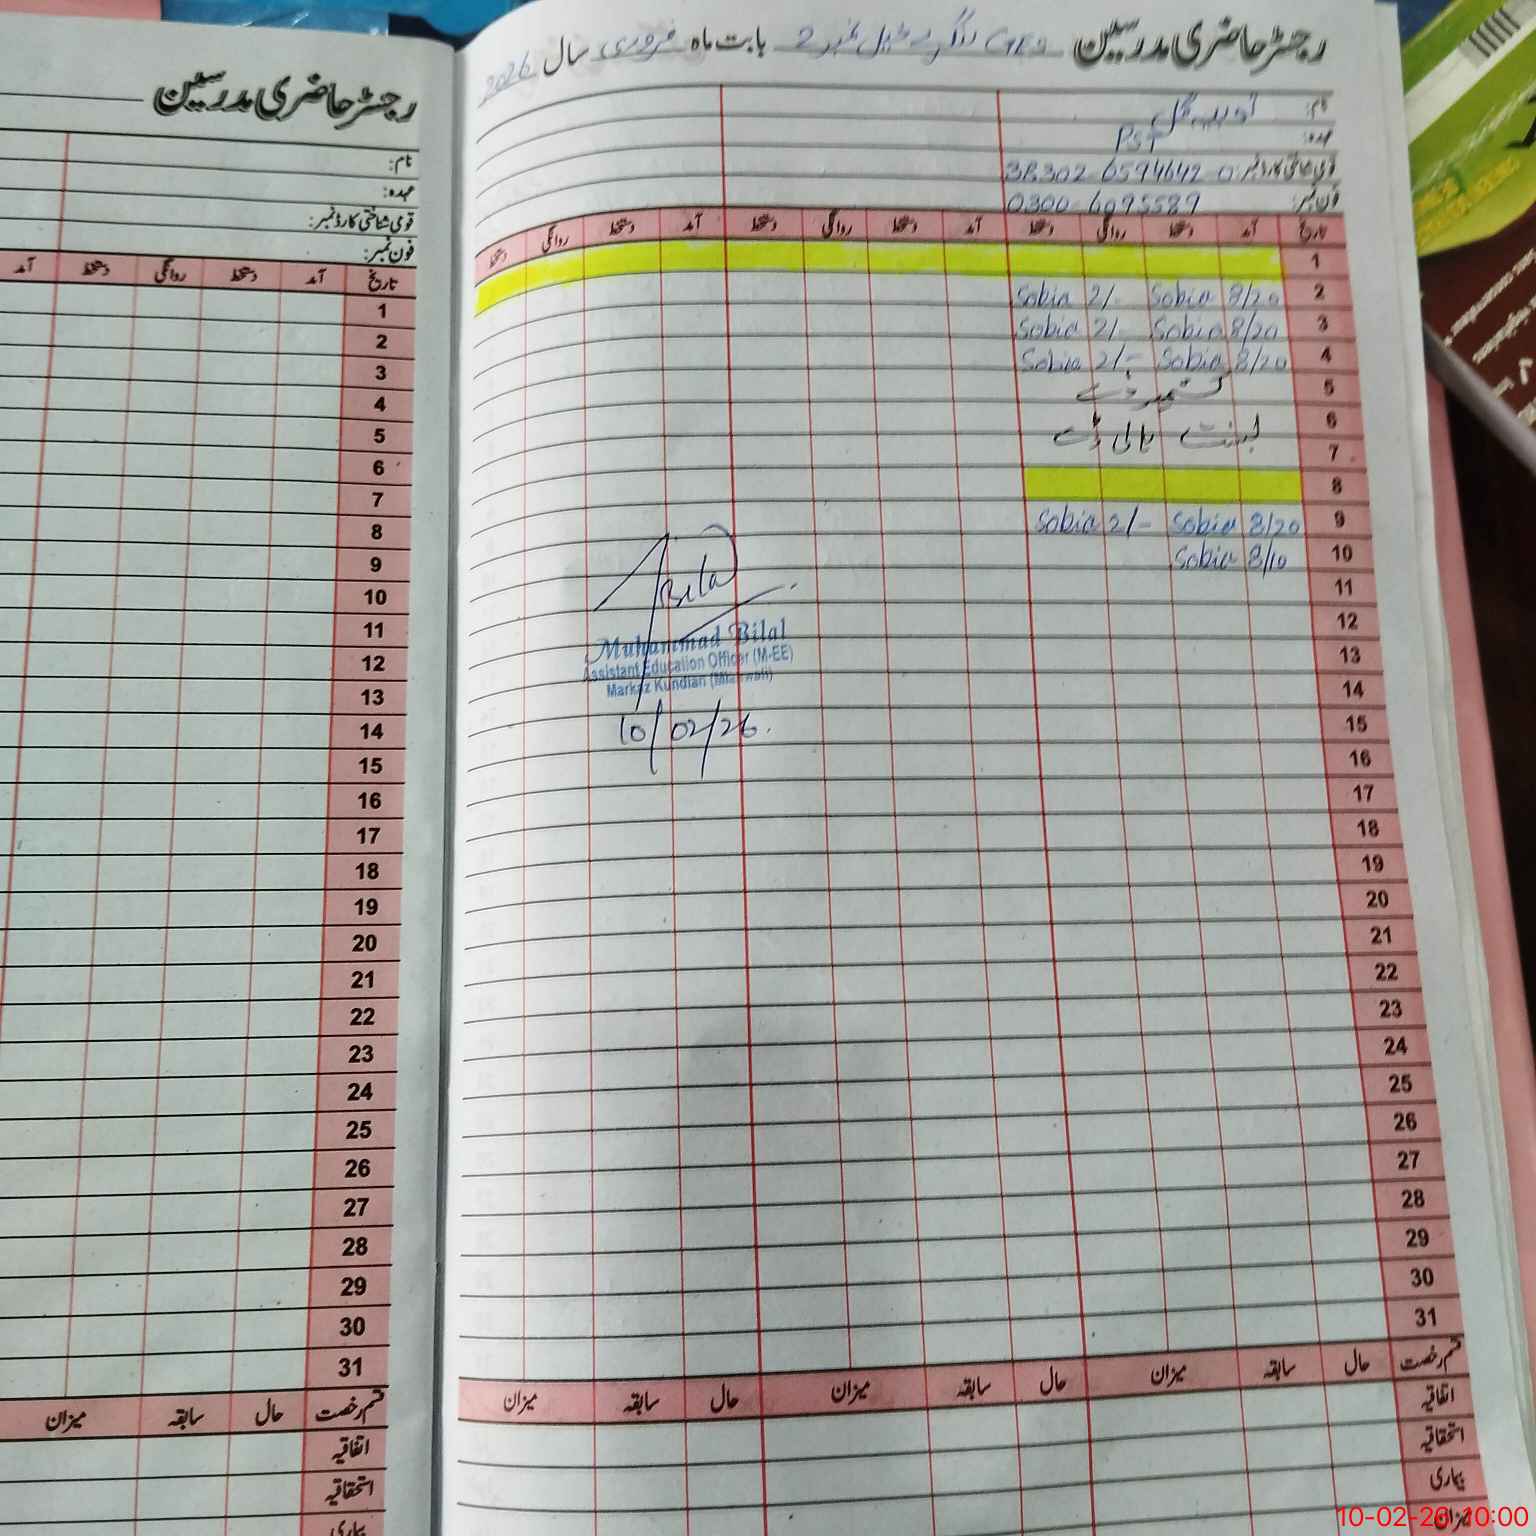 رجسٹر حاضری مدرسین GES نمبر 2 بابت ماہ فروری سال 2026
نام:
عہدہ: PST
قومی شناختی کارڈ نمبر: 38302 6594642 0
فون نمبر: 0300 6095589
تاریخ آمد دستخط روانگی دستخط آمد دستخط روانگی دستخط آمد دستخط روانگی دستخط
1
2 8/20 Sobia 2/- Sobia
3 8/20 Sobia 2/- Sobia
4 8/20 Sobia 2/- Sobia
5 کشمیر ڈے
6
7
8
9 8/20 Sobia 2/- Sobia
10 8/10 Sobia
11
12
13
14
15
16
17
18
19
20
21
22
23
24
25
26
27
28
29
30
31
قسم رخصت حال سابقہ میزان حال سابقہ میزان حال سابقہ میزان
اتفاقیہ
استحقاقیہ
بیماری
میزان
Bilal
Muhammad Bilal
Assistant Education Officer (M-EE)
Markaz Kundian (Mianwali)
10/02/26.
رجسٹر حاضری مدرسین
نام:
عہدہ:
قومی شناختی کارڈ نمبر:
فون نمبر:
تاریخ آمد دستخط روانگی دستخط آمد
1
2
3
4
5
6
7
8
9
10
11
12
13
14
15
16
17
18
19
20
21
22
23
24
25
26
27
28
29
30
31
قسم رخصت حال سابقہ میزان
اتفاقیہ
استحقاقیہ
بیماری
10-02-26 10:00